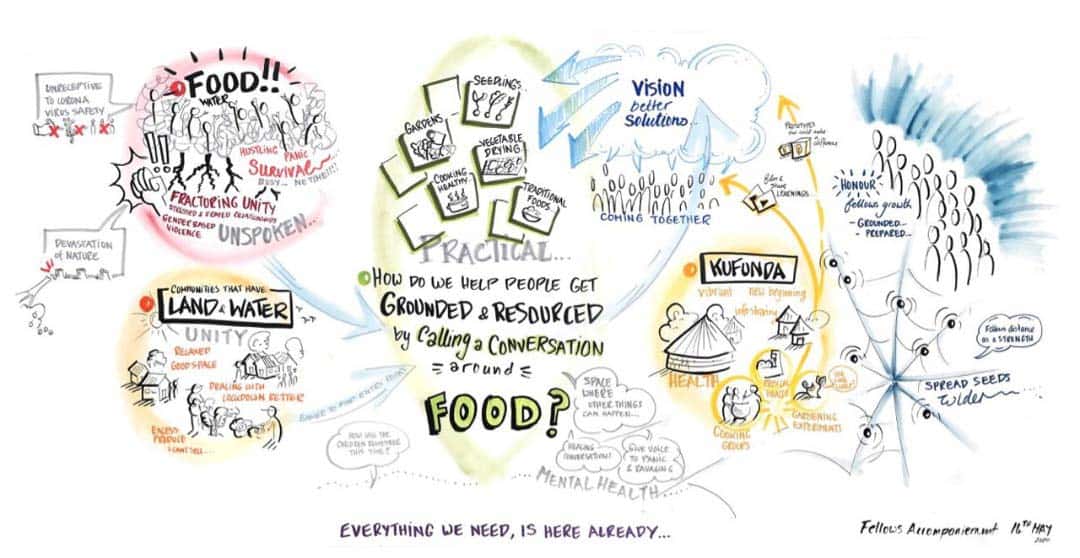 UNRECEPTIVE
TO CORONA
VIRUS SAFETY
FOOD!!
WATER
HUSTLING PANIC
SURVIVAL
BUSY... NO TIME!!!
FRACTURING UNITY
STRESSED & STRAINED RELATIONSHIPS
GENDER BASED
VIOLENCE
UNSPOKEN...
DEVASTATION
OF NATURE
COMMUNITIES THAT HAVE
LAND & WATER
UNITY
RELAXED
GOOD SPACE
DEALING WITH
LOCKDOWN BETTER
EXCESS
PRODUCE
CAN'T SELL...
EASIER TO FIND ENTRY POINTS
SEEDLINGS
GARDENS
VEGETABLE
DRYING
COOKING
HEALTHY
TRADITIONAL
FOODS
PRACTICAL...
HOW DO WE HELP PEOPLE GET
GROUNDED & RESOURCED
by Calling a CONVERSATION
around
FOOD?
HOW WILL THE
CHILDREN REMEMBER
THIS TIME?
SPACE
WHERE
OTHER THINGS
CAN HAPPEN...
HEALING
CONVERSATIONS
GIVE VOICE
TO PANIC
& RAVAGING
MENTAL HEALTH...
VISION
better
SOLUTIONS...
COMING TOGETHER
PROTOTYPES
that could make
a difference
SHARE
LEARNINGS
KUFUNDA
vibrant new beginning
info sharing
HEALTH
COOKING
GROUPS
GARDENING
EXPERIMENTS
HONOUR
fellows growth
- GROUNDED...
- PREPARED...
Fellows distance
as a STRENGTH
SPREAD SEEDS
wider
EVERYTHING WE NEED, IS HERE ALREADY...
Fellows Accompaniment 16TH MAY
2020